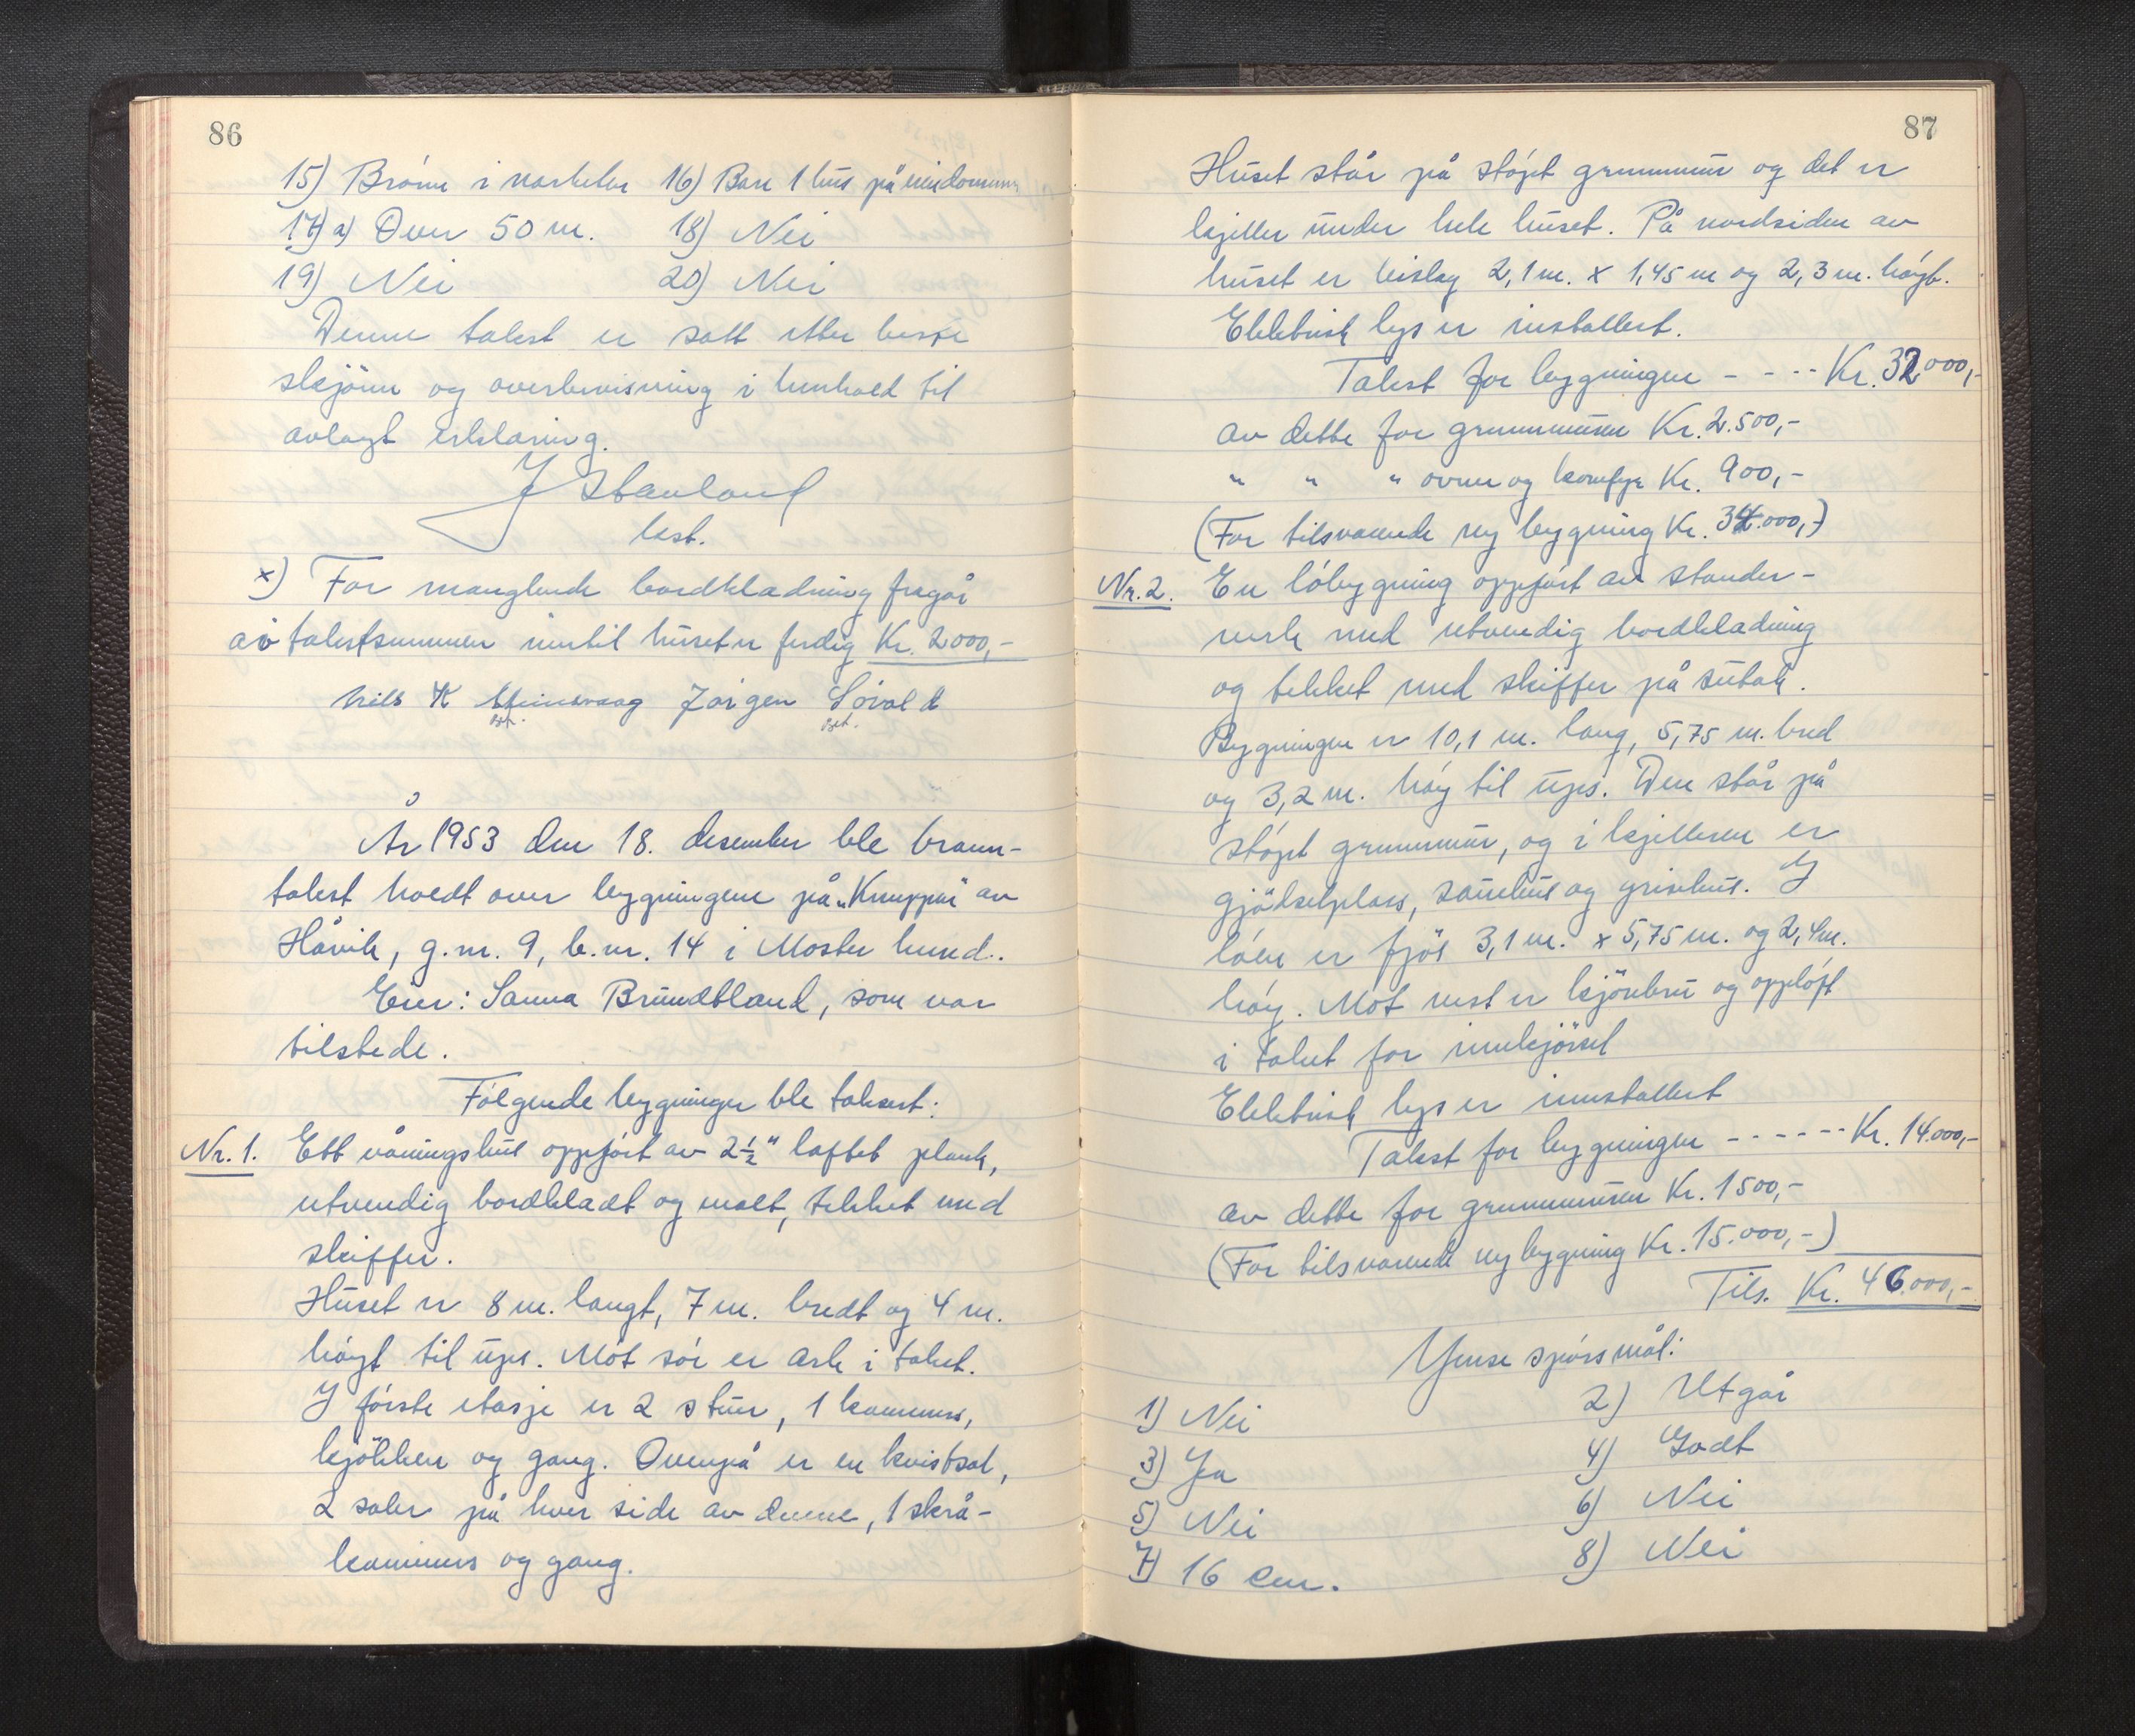 86
15) Brønn i nærheten 16) Bare 1 hus på eiendommen
17) a) Over 50 m. 18) Nei
19) Nei 20) Nei
Denne takst er satt etter beste
skjønn og overbevisning i henhold til
avlagt erklæring.
J Stavland
best.
x) For manglende bordkledning fragår
av takstsummen inntil huset er ferdig Kr. 2000,-
Nils K Steinsvaag Jørgen Løvold
År 1953 den 18. desember ble brann-
takst holdt over bygningene på „Knuppen" av
Håvik, g.nr. 9, b.nr. 14 i Moster herred.
Eier: Sanna Brundtland, som var
tilstede.
Følgende bygninger ble taksert:
Nr. 1. Ett våningshus oppført av 2½" laftet plank,
utvendig bordkledt og malt, tekket med
skiffer.
Huset er 8 m. langt, 7 m. bredt og 4 m.
høyt til ups. Mot sør er ark i taket.
I første etasje er 2 stuer, 1 kammers,
kjøkken og gang. Ovenpå er en kvistsal,
2 saler på hver side av denne, 1 skrå-
kammers og gang.
87
Huset står på støpt grunnmur og det er
kjeller under hele huset. På nordsiden av
huset er bislag 2,1 m. x 1,45 m og 2,3 m. høgt.
Elektrisk lys er installert.
Takst for bygningen - - -- Kr. 32000,-
av dette for grunnmuren Kr. 2.500,-
" " " ovner og komfyr Kr. 900,-
(For tilsvarende ny bygning Kr. 34.000,-)
Nr. 2. En løbygning oppført av stander-
verk med utvendig bordkledning
og tekket med skiffer på sutak.
Bygningen er 10,1 m. lang, 5,75 m. bred
og 3,2 m. høy til ups. Den står på
støpt grunnmur, og i kjelleren er
gjødselplass, sauehus og grisehus. I
løen er fjøs 3,1 m. x 5,75 m. og 2,4 m.
høy. Mot vest er kjørebru og oppløft
i taket for innkjørsel
Elektrisk lys er innstallert
Takst for bygningen - - - - - -- Kr. 14.000,-
av dette for grunnmuren Kr. 1500,-
(For tilsvarende ny bygning Kr. 15.000,-)
Tils. Kr. 46.000,-
Ymse spørsmål:
1) Nei 2) Utgår
3) Ja 4) Godt
5) Nei 6) Nei
7) 16 cm. 8) Nei